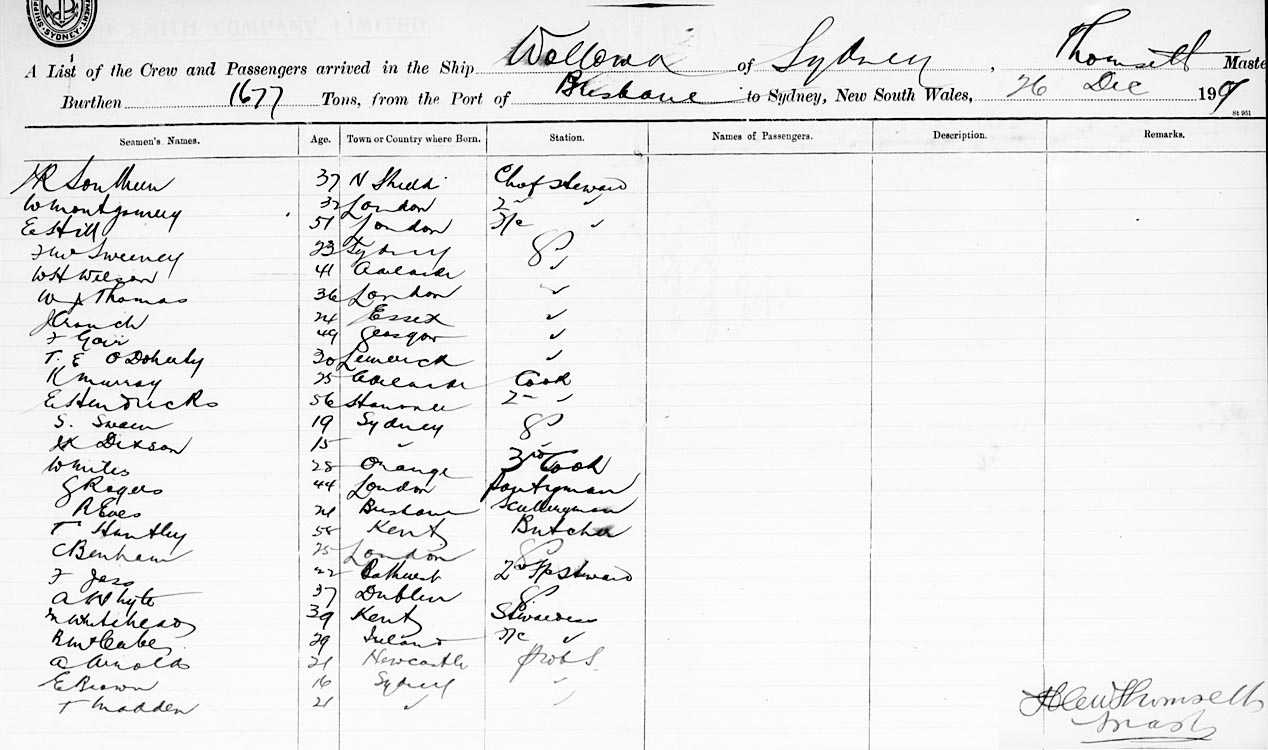 SHIPPING
SYDNEY
SMITH COMPANY LIMITED.
A List of the Crew and Passengers arrived in the Ship Wollowra of Sydney, Thomsett Maste
Burthen 1677 Tons, from the Port of Brisbane to Sydney, New South Wales, 26 Dec 190
St 951
Seamen's Names. Age. Town or Country where Born. Station. Names of Passengers. Description. Remarks.
37 N Chief Steward
W Montgomery 32 London 2nd "
E Hill 51 London "
Sweeney 23 Sydney
W H Wilson 41 Adelaide "
W Thomas 36 London "
J Crouch 24 Essex "
F Gair 49 Glasgow "
T. E O'Doherty 30 Limerick "
K Murray 25 Adelaide Cook
E Hendricks 56 2nd "
S. Swain 19 Sydney
Dixson 15 "
28 Orange 3rd Cook
G Rogers 44 London Pantryman
R Eves 24 Brisbane Sculleryman
T Huntley Kent Butcher
C Benham 25 London
F Jess 22 Bathurst 2nd Steward
A Whyte 37 Dublin
M Whitehead 39 Kent Stewardess
R McCabe 29 Ireland "
A Arnold 21 Newcastle
E Brown 16 Sydney "
T Madden 21 "
Thomsett
Mast